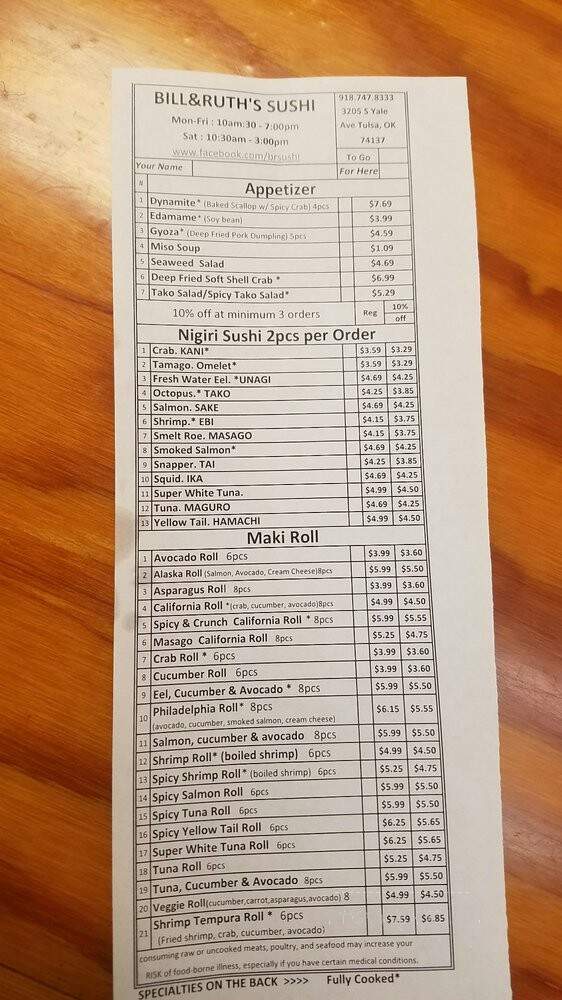 BILL&RUTH'S SUSHI
Mon-Fri : 10am:30 - 7:00pm
Sat : 10:30am - 3:00pm
www.facebook.com/brsushi
918.747.8333
3205 S Yale
Ave.Tulsa, OK
74137
To Go
Your Name
For Here
# Appetizer
1 Dynamite* (Baked Scallop w/ Spicy Crab) 4pcs $7.69
2 Edamame* (Soy bean) $3.99
3 Gyoza* (Deep Fried Pork Dumpling) 5pcs $4.59
4 Miso Soup $1.09
5 Seaweed Salad $4.69
6 Deep Fried Soft Shell Crab * $6.99
7 Tako Salad/Spicy Tako Salad* $5.29
10% off at minimum 3 orders Reg 10% off
Nigiri Sushi 2pcs per Order
1 Crab. KANI* $3.59 $3.29
2 Tamago. Omelet* $3.59 $3.29
3 Fresh Water Eel. *UNAGI $4.69 $4.25
4 Octopus.* TAKO $4.25 $3.85
5 Salmon. SAKE $4.69 $4.25
6 Shrimp.* EBI $4.15 $3.75
7 Smelt Roe. MASAGO $4.15 $3.75
8 Smoked Salmon* $4.69 $4.25
9 Snapper. TAI $4.25 $3.85
10 Squid. IKA $4.69 $4.25
11 Super White Tuna. $4.99 $4.50
12 Tuna. MAGURO $4.69 $4.25
13 Yellow Tail. HAMACHI $4.99 $4.50
Maki Roll
1 Avocado Roll 6pcs $3.99 $3.60
2 Alaska Roll (Salmon, Avocado, Cream Cheese)8pcs $5.99 $5.50
3 Asparagus Roll 8pcs $3.99 $3.60
4 California Roll *(crab, cucumber, avocado)8pcs $4.99 $4.50
5 Spicy & Crunch California Roll * 8pcs $5.99 $5.55
6 Masago California Roll 8pcs $5.25 $4.75
7 Crab Roll * 6pcs $3.99 $3.60
8 Cucumber Roll 6pcs $3.99 $3.60
9 Eel, Cucumber & Avocado * 8pcs $5.99 $5.50
10 Philadelphia Roll* 8pcs $6.15 $5.55
(avocado, cucumber, smoked salmon, cream cheese)
11 Salmon, cucumber & avocado 8pcs $5.99 $5.50
12 Shrimp Roll* (boiled shrimp) 6pcs $4.99 $4.50
13 Spicy Shrimp Roll* (boiled shrimp) 6pcs $5.25 $4.75
14 Spicy Salmon Roll 6pcs $5.99 $5.50
15 Spicy Tuna Roll 6pcs $5.99 $5.50
16 Spicy Yellow Tail Roll 6pcs $6.25 $5.65
17 Super White Tuna Roll 6pcs $6.25 $5.65
18 Tuna Roll 6pcs $5.25 $4.75
19 Tuna, Cucumber & Avocado 8pcs $5.99 $5.50
20 Veggie Roll(cucumber,carrot,asparagus,avocado) 8 $4.99 $4.50
21 Shrimp Tempura Roll * 6pcs $7.59 $6.85
(Fried shrimp, crab, cucumber, avocado)
consuming raw or uncooked meats, poultry, and seafood may increase your
RISK of food-borne illness, especially if you have certain medical conditions.
SPECIALTIES ON THE BACK >>>> Fully Cooked*